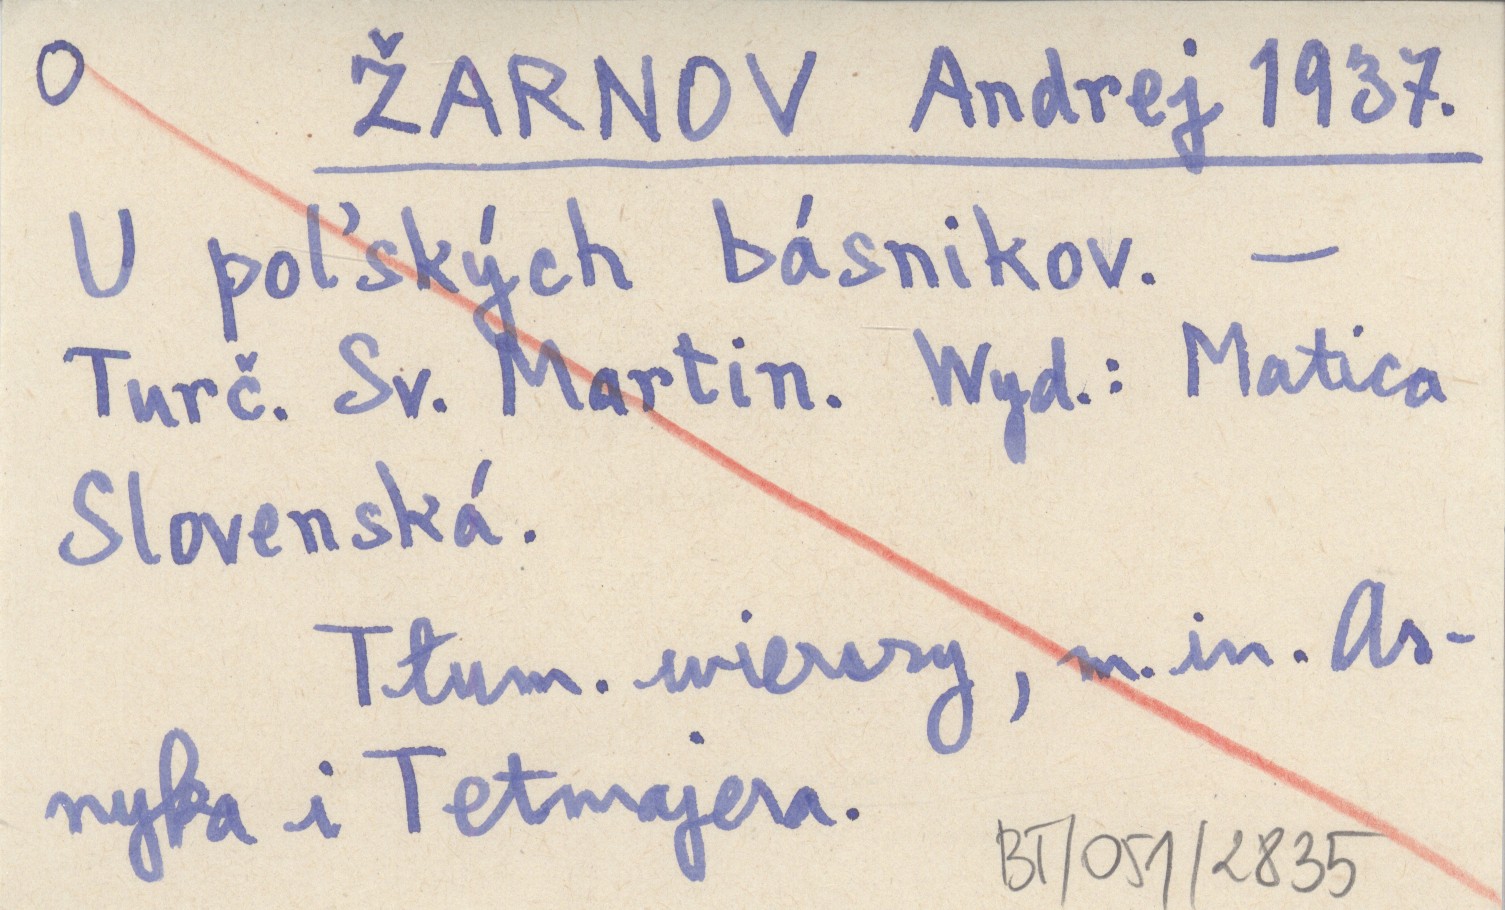 O ŽARNOV Andrej 1937.
U poľských básnikov. —
Turč. Sv. Martin. Wyd.: Matica
Slovenská.
Tłum. wierszy, m.in. As-
nyka i Tetmajera.
BT/051/2835